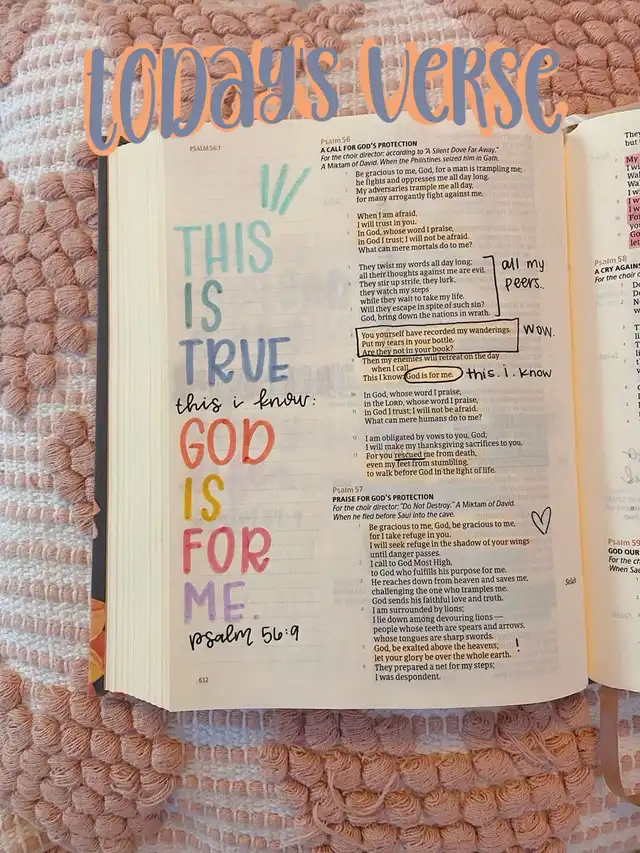 today's verse
PSALM 56:1
THIS
IS
TRUE
this i know:
GOD
IS
FOR
ME.
psalm 56:9
612
Psalm 56
A CALL FOR GOD'S PROTECTION
For the choir director: according to "A Silent Dove Far Away."
A Miktam of David. When the Philistines seized him in Gath.
Be gracious to me, God, for a man is trampling me;
he fights and oppresses me all day long.
My adversaries trample me all day,
for many arrogantly fight against me.
When I am afraid,
I will trust in you.
In God, whose word I praise,
in God I trust; I will not be afraid.
What can mere mortals do to me?
They twist my words all day long;
all their thoughts against me are evil.
They stir up strife, they lurk,
they watch my steps
while they wait to take my life.
Will they escape in spite of such sin?
God, bring down the nations in wrath.
all my
peers..
You yourself have recorded my wanderings.
Put my tears in your bottle.
Are they not in your book?
wow.
Then my enemies will retreat on the day
when I call.
This I know: God is for me. this. i. know
In God, whose word I praise,
in the LORD, whose word I praise,
in God I trust; I will not be afraid.
What can mere humans do to me?
I am obligated by vows to you, God;
I will make my thanksgiving sacrifices to you.
For you rescued me from death,
even my feet from stumbling,
to walk before God in the light of life.
Psalm 57
PRAISE FOR GOD'S PROTECTION
For the choir director: "Do Not Destroy." A Miktam of David.
When he fled before Saul into the cave.
Be gracious to me, God, be gracious to me,
for I take refuge in you.
I will seek refuge in the shadow of your wings
until danger passes.
I call to God Most High,
to God who fulfills his purpose for me.
He reaches down from heaven and saves me,
challenging the one who tramples me. Selah
God sends his faithful love and truth.
I am surrounded by lions;
I lie down among devouring lions —
people whose teeth are spears and arrows,
whose tongues are sharp swords.
God, be exalted above the heavens; !
let your glory be over the whole earth.
They prepared a net for my steps;
I was despondent.
They
but
My
Psalm 58
A CRY AGAINS
For the choir
Psalm 59
GOD OUR
For the ch
When Sau